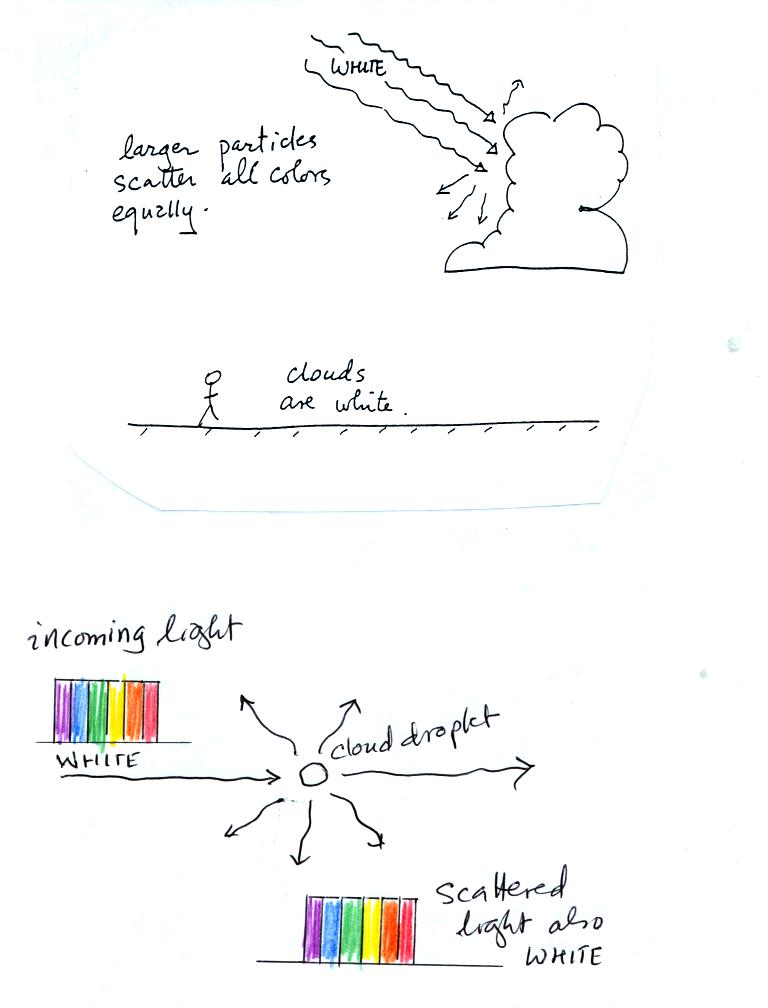 WHITE
larger particles
scatter all colors
equally.
clouds
are white.
incoming light
WHITE
cloud droplet
scattered
light also
WHITE